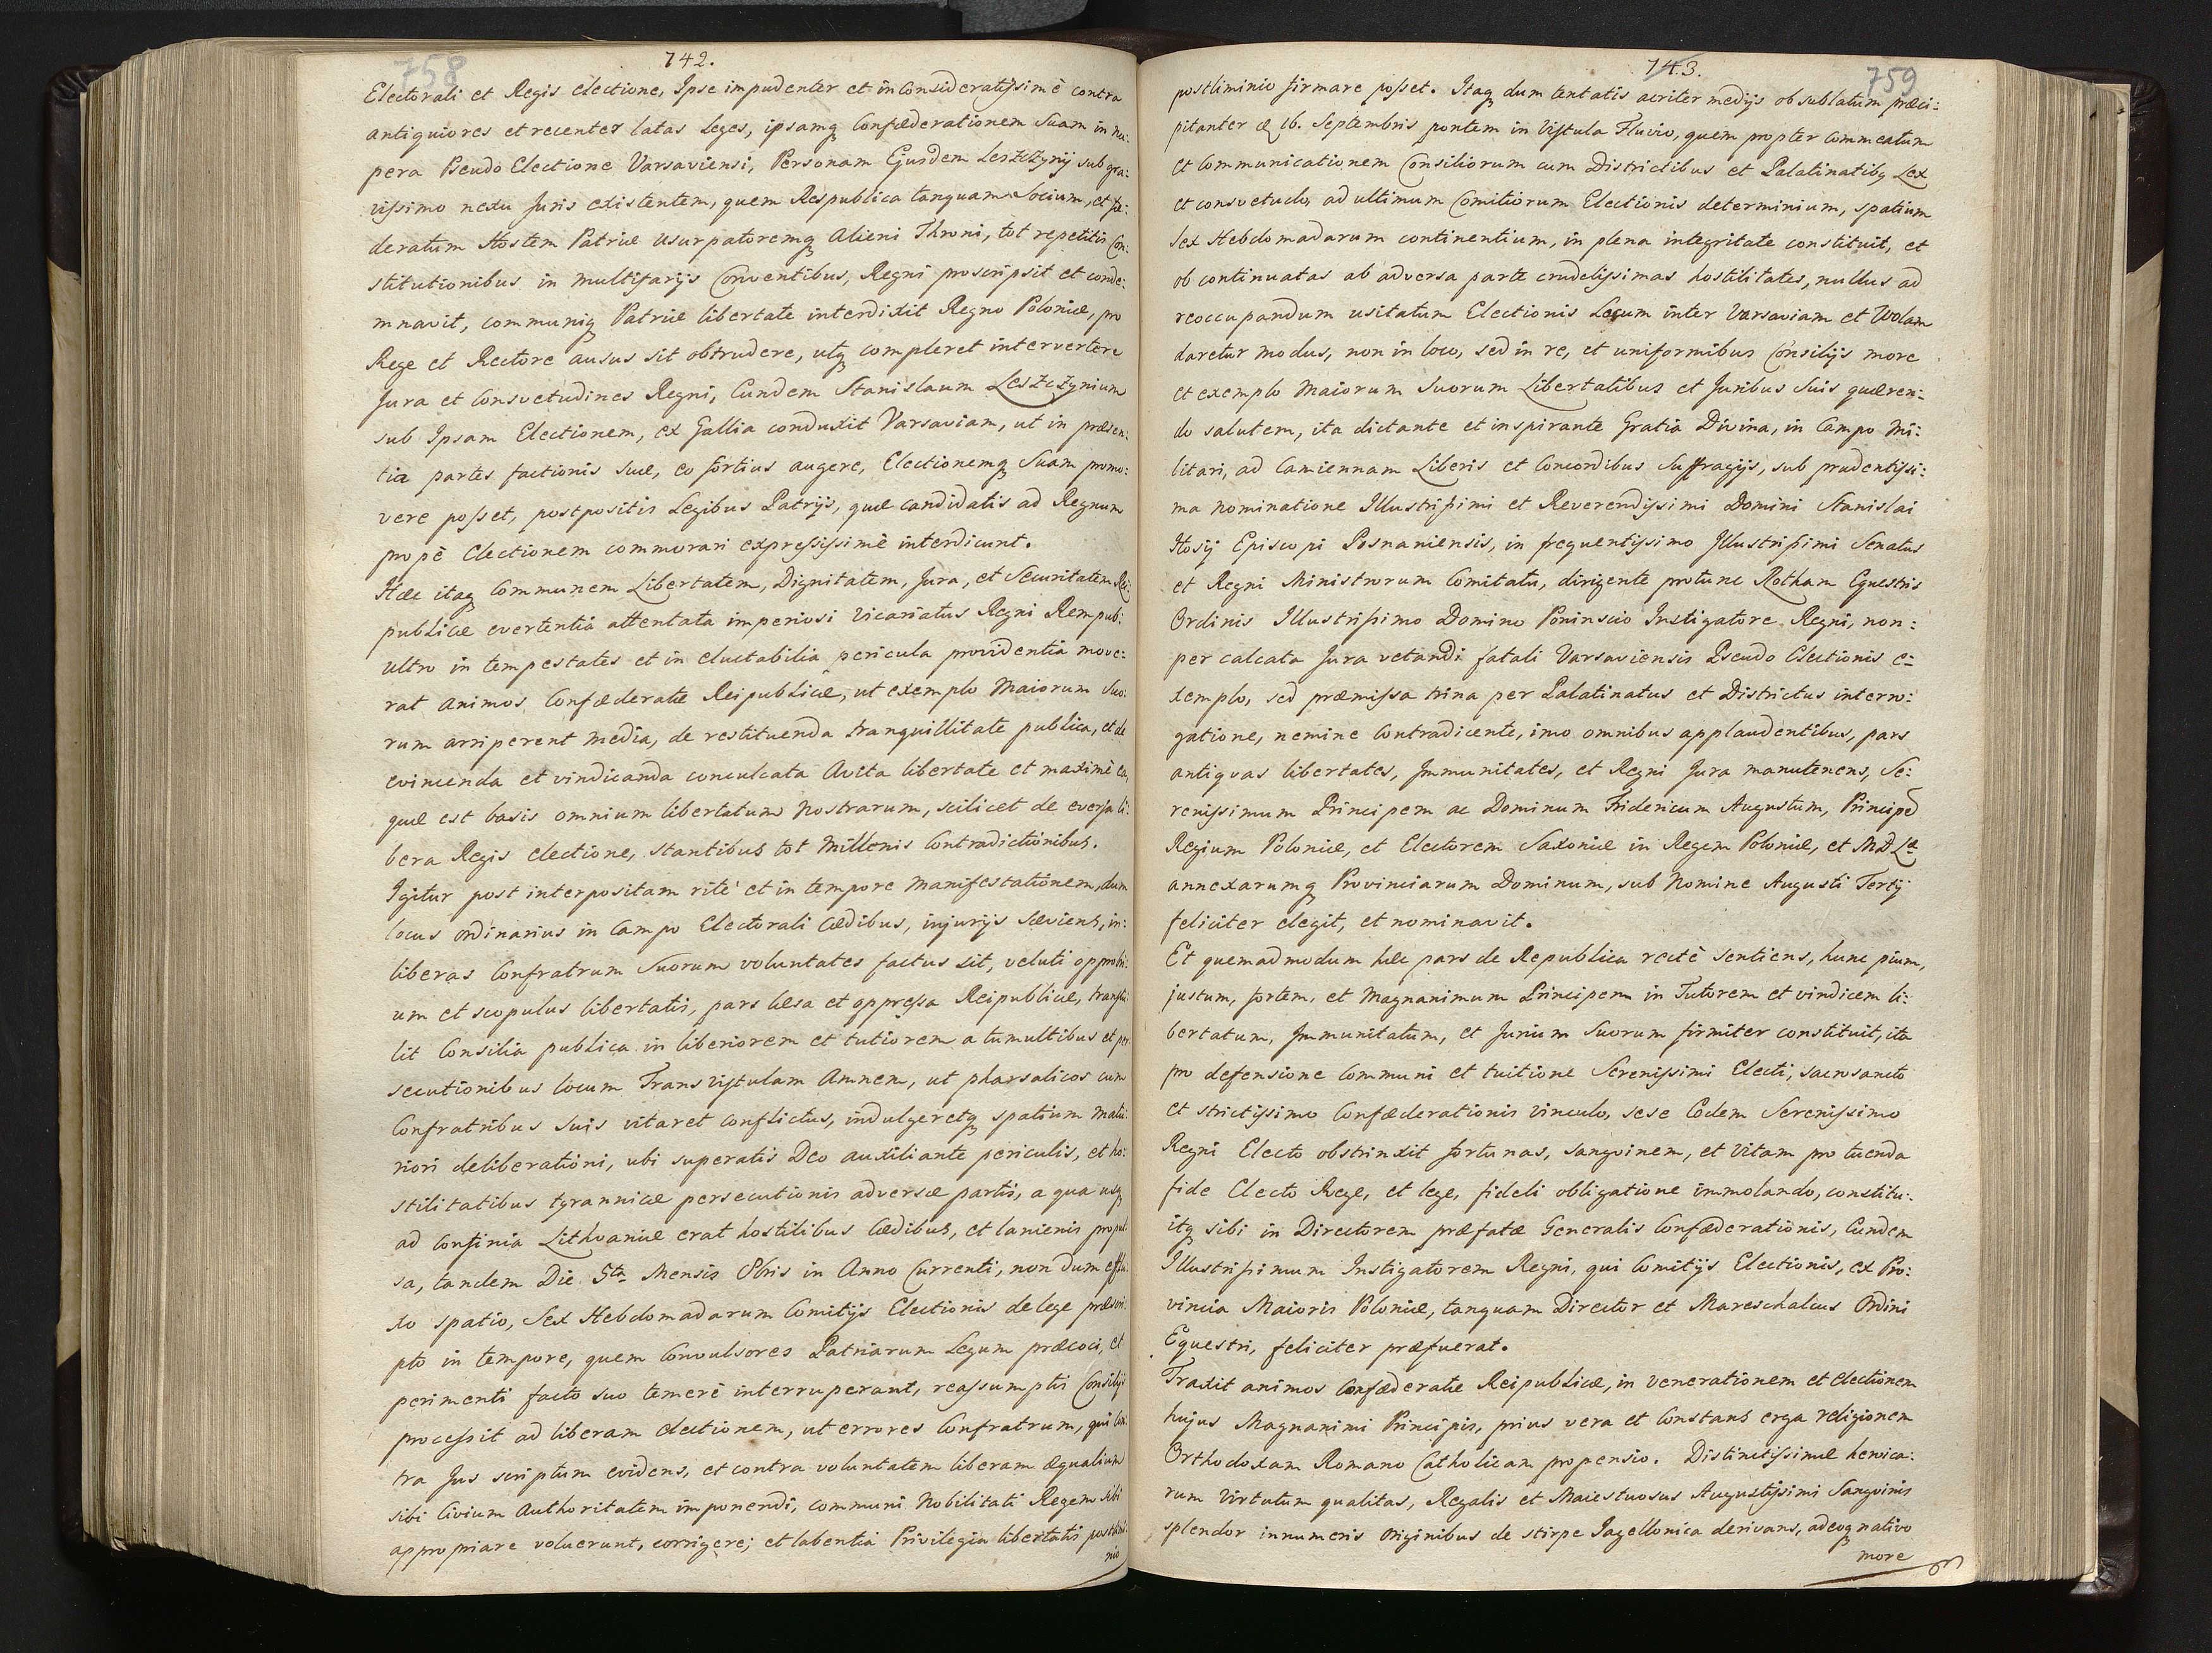 742.
758
Electorali et Regis electione, Ipse impudenter et inconsideratissimè contra
antiquiores et recenter latas leges, ipsamq Confæderationem Suam in nu:
pera Pseudo Electione Varsaviensi, Personam Ejusdem Leszczynij sub gra:
vissimo nexu Juris existentem, quem Respublica tanquam Socium, et fæ:
deratum Hostem Patriæ Usurpatoremq Alieni Throni, tot repetitis Con:
stitutionibus in multifarijs Conventibus, Regni proscripsit et conde:
mnavit, communiq Patriæ libertate interdixit Regno Poloniæ, pro
Rege et Rectore ausus sit obtrudere, utq compleret intervertere
Jura et Consvetudines Regni, Eundem Stanislaum Leszczynium
sub Ipsam Electionem, ex Gallia conduxit Varsaviam, ut in præsen:
tia partes factionis suæ, eo fortius augere, Electionemq Suam promo:
vere posset, postpositis Legibus Patrijs, quæ candidatis ad Regnum
propè Electionem commorari expressissimè interdicunt.
Hæc itaq Communem Libertatem, Dignitatem, Jura, et Securitatem Rei:
publicæ evertentia attentata imperiosi Vicariatus Regni Rempub:
ultro in tempestates et in eluctabilia pericula providentia move:
rat Animos Confæderatæ Reipublicæ, ut exemplo Maiorum Suo:
rum arriperent media, de restituenda tranquillitate publica, et de
evincenda et vindicanda conculcata Avita libertate et maximè ea,
quæ est basis omnium libertatum Nostrarum, scilicet de eversa li:
bera Regis electione, stantibus tot Millenis Contradictionibus.
Igitur post interpositam ritè et in tempore Manifestationem, dum
locus ordinarius in Campo Electorali Cædibus, injurijs sæviens, in:
liberas Confratrum Suorum voluntates factus sit, veluti opprobri:
um et scopulus libertatis, pars læsa et oppressa Reipublicæ, transtu:
lit Consilia publica in liberiorem et tutiorem a tumultibus et per
secutionibus locum Trans Vistulam Amnem, ut pharsalicos cum
Confratribus Suis vitaret conflictus, indulgeretq spatium matu:
riori deliberationi, ubi superatis Deo auxiliante periculis, et ho:
stilitatibus tyrannicæ persecutionis adversæ partis, a qua usq
ad Confinia Lithvaniæ erat hostilibus Cædibus, et lanienis propul
sa, tandem Die 5ta Mensis 8bris in Anno Currenti, non dum efflu:
xo spatio, Sex Hebdomadarum Comitijs Electionis de lege præscri:
pto in tempore, quem Convulsores Patriarum Legum præcoci, et
perimenti facto suo temerè interruperant, reassumptis Consilijs
processit ad liberam electionem, ut errores Confratrum, qui con:
tra Jus scriptum evidens, et contra voluntatem liberam æqualium
sibi Civium Authoritatem imponendi, communi Nobilitati Regem sibi
appropriare voluerunt, corrigere; et labentia Privilegia libertatis postlimi:
nio
743.
759
postliminio firmare posset. Itaq dum tentatis acriter medijs ob sublatum præci:
pitanter 16. Septembris pontem in Vistula Fluvio, quem propter Commeatum
et Communicationem Consiliorum cum Districtibus et Palatinatibq Lex
et consvetudo, ad ultimum Comitiorum Electionis determinium, spatium
Sex Hebdomadarum continentium, in plena integritate constituit, et
ob continuatas ab adversa parte crudelissimas hostilitates, nullus ad
reoccupandum usitatum Electionis Locum inter Varsaviam et Wolam
daretur modus, non in loco, sed in re, et uniformibus Consilijs more
et exemplo Maiorum Suorum Libertatibus et Juribus Suis quæren:
do salutem, ita dictante et inspirante Gratia Divina, in Campo Mi:
litari, ad Camiennam Liberis et Concordibus Suffragijs, sub prudentissi:
ma nominatione Illustrissimi et Reverendissimi Domini Stanislai
Hosij Episcopi Posnaniensis, in frequentissimo Illustrissimi Senatus
et Regni Ministrorum Comitatu, dirigente protunc Rotham Equestris
Ordinis Illustrissimo Domino Poninscio Instigatore Regni, non:
per calcata Jura vetandi fatali Varsaviensis Pseudo Electionis e:
xemplo, sed præmissa trina per Palatinatus et Districtus interro:
gatione, nemine Contradicente, imo omnibus applaudentibus, pars
antiquas libertates, Immunitates, et Regni Jura manutenens, Se:
renissimum Principem ac Dominum Fridericum Augustum, Principẽ
Regium Poloniæ, et Electorem Saxoniæ in Regem Poloniæ, et MDLæ
annexarumq Provinciarum Dominum, sub Nomine Augusti Tertij
feliciter elegit, et nominavit.
Et quemadmodum hæc pars de Republica rectè sentiens, hunc pium,
justum, fortem, et Magnanimum Principem in Tutorem et vindicem li:
bertatum, Immunitatum, et Jurium Suorum firmiter constituit, ita
pro defensione Communi et tuitione Serenissimi Electi, sacrosancto
et strictissimo Confæderationis vinculo, sese Eodem Serenissimo
Regni Electo obstrinxit fortunas, sangvinem, et Vitam pro tuenda
fide Electo Rege, et lege, fideli obligatione immolando, constitu:
itq sibi in Directorem præfatæ Generalis Confæderationis, Eundem
Illustrissimum Instigatorem Regni, qui Comitijs Electionis, ex Pro:
vincia Maioris Poloniæ, tanquam Director et Mareschalcus Ordini
Equestri, feliciter præfuerat.
Traxit animos Confæderatæ Reipublicæ, in venerationem et electionem
hujus Magnanimi Principis, prius vera et Constans erga religionem
Orthodoxam Romano Catholicam propensio. Distinctissimæ heroica:
rum Virtutum qualitas, Regalis et Maiestuosus Augustissimi Sangvinis
splendor innumeris Originibus de stirpe Jagellonica derivans, adeoq nativo
more